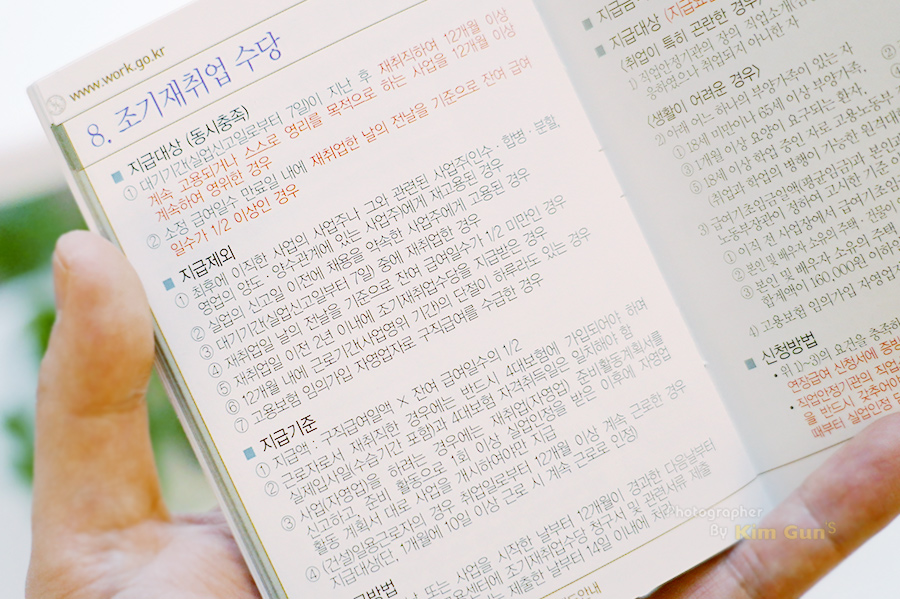 www.work.go.kr
8. 조기재취업 수당
■ 지급대상 (동시충족)
① 대기기간(실업신고일로부터 7일)이 지난 후 재취직하여 12개월 이상
계속 고용되거나 스스로 영리를 목적으로 하는 사업을 12개월 이상
계속하여 영위한 경우
② 소정 급여일수 만료일 내에 재취업한 날의 전날을 기준으로 잔여 급여
일수가 1/2 이상인 경우
■ 지급제외
① 최후에 이직한 사업의 사업주나 그와 관련된 사업주(인수·합병·분할,
영업의 양도·양수관계에 있는 사업주)에게 재고용된 경우
② 실업의 신고일 이전에 채용을 약속한 사업주에게 고용된 경우
③ 대기기간(실업신고일부터 7일) 중에 재취업한 경우
④ 재취업일 날의 전날을 기준으로 잔여 급여일수가 1/2 미만인 경우
⑤ 재취업일 이전 2년 이내에 조기재취업수당을 지급받은 경우
⑥ 12개월 내에 근로기간(사업영위 기간)의 단절이 하루라도 있는 경우
⑦ 고용보험 임의가입 자영업자로 구직급여를 수급한 경우
■ 지급기준
① 지급액 : 구직급여일액 × 잔여 급여일수의 1/2
② 근로자로서 재취직한 경우에는 반드시 4대보험에 가입되어야 하며
실제입사일(수습기간 포함)과 4대보험 자격취득일은 일치해야 함
③ 사업(자영업)을 하려는 경우에는 재취업(자영업) 준비활동계획서를
신고하고, 준비 활동으로 1회 이상 실업인정을 받은 이후에 자영업
활동 계획서 대로 사업을 개시하여야만 지급
④ (건설)일용근로자의 경우 취업일로부터 12개월 이상 계속 근로한 경우
지급대상(단, 1개월에 10일 이상 근로 시 계속 근로로 인정)
급방법
날 또는 사업을 시작한 날부터 12개월이 경과한 다음날부터
고용센터에 조기재취업수당 청구서 및 관련서류 제출
는 제출한 날부터 14일 이내에 지급
안내
■ 지급대상
(취업이 특히 곤란한 경우)
1) 직업안정기관의 장의 직업소개
응하였으나 취업되지 아니한 자
(생활이 어려운 경우)
2) 아래 어느 하나의 부양가족이 있는 자
① 18세 미만이나 65세 이상 부양가족,
② 1개월 이상 요양이 요구되는 환자,
③ 18세 이상 학업 중인 자로 고용노동부
(취업과 학업의 병행이 가능한 원격대
3) 급여기초임금일액(평균임금)과 본인과
노동부장관이 정하여 고시한 기준
① 이직 전 사업장에서 급여기초임
② 본인 및 배우자 소유의 주택, 건물이
③ 본인 및 배우자 소유의 주택
합계액이 160,000원 이하인
4) 고용보험 임의가입 자영업자
■ 신청방법
• 위 1)~3)의 요건을 충족하
연장급여 신청서에 증빙
• 직업안정기관의 직업
을 반드시 갖추어야
때부터 실업인정
Photographer
By Kim Gun's